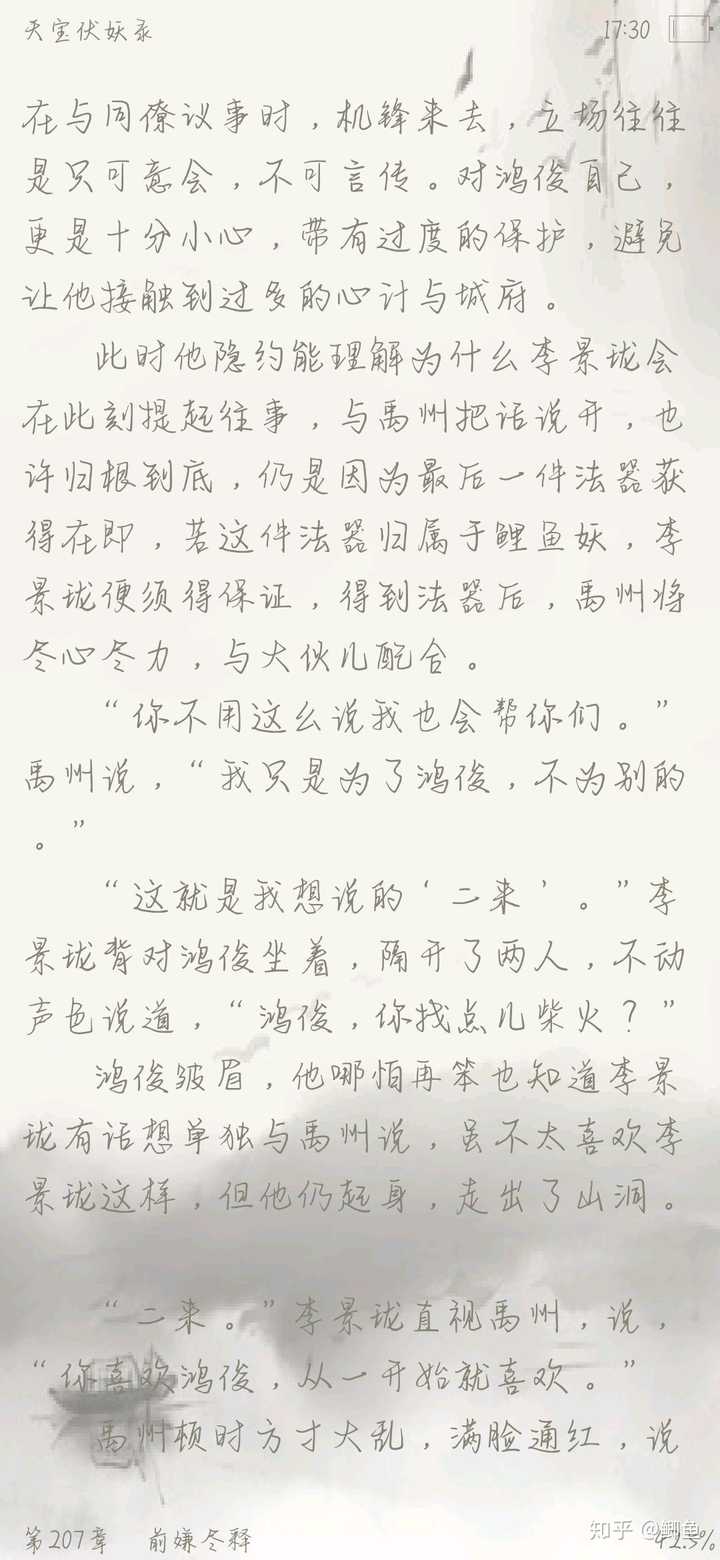 天宝伏妖录
17:30
在与同僚议事时，机锋来去，立场往往
是只可意会，不可言传。对鸿俊自己，
更是十分小心，带有过度的保护，避免
让他接触到过多的心计与城府。
此时他隐约能理解为什么李景珑会
在此刻提起往事，与禹州把话说开，也
许归根到底，仍是因为最后一件法器获
得在即，若这件法器归属于鲤鱼妖，李
景珑便须得保证，得到法器后，禹州将
尽心尽力，与大伙儿配合。
“你不用这么说我也会帮你们。”
禹州说，“我只是为了鸿俊，不为别的
。”
“这就是我想说的‘二来’。”李
景珑背对鸿俊坐着，隔开了两人，不动
声色说道，“鸿俊，你找点儿柴火？”
鸿俊皱眉，他哪怕再笨也知道李景
珑有话想单独与禹州说，虽不太喜欢李
景珑这样，但他仍起身，走出了山洞。
“二来。”李景珑直视禹州，说，
“你喜欢鸿俊，从一开始就喜欢。”
禹州顿时方寸大乱，满脸通红，说
第207章 前嫌冬释
知乎 @鲫鱼
42.5%